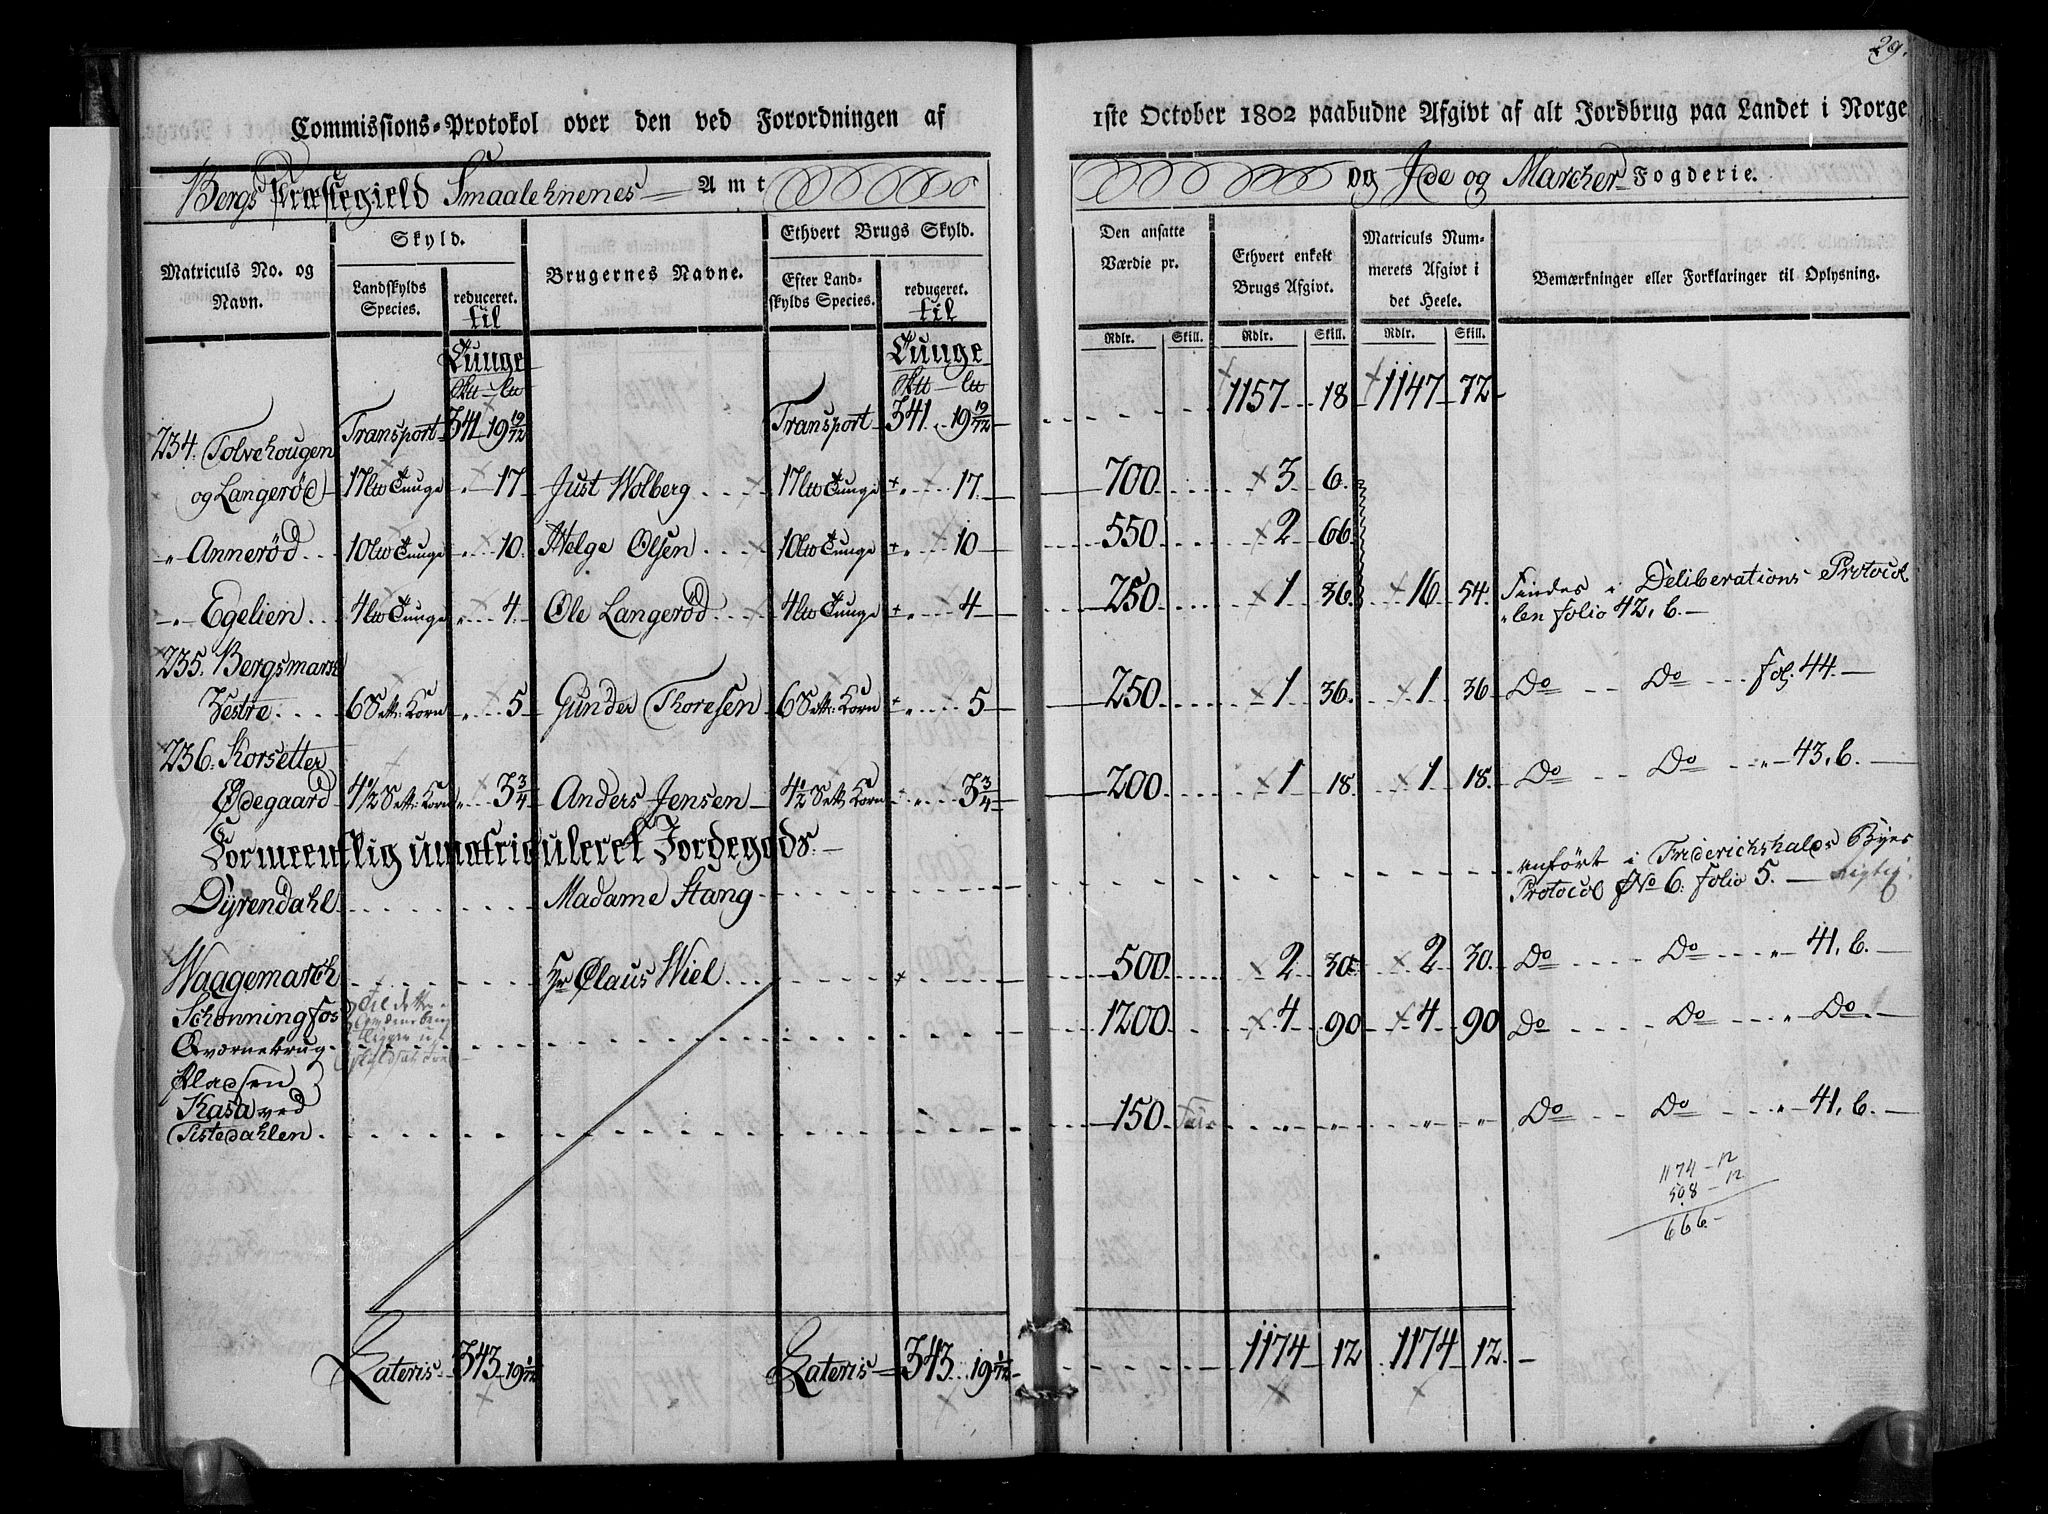 29.
Commissions-Protokol over den ved Forordningen af 1ste October 1802 paabudne Afgivt af alt Jordbrug paa Landet i Norge
Bergs Præstegield Smaalehnenes Amt og Ide og Marcher Fogderie.
Matriculs No. og Navn.
Skyld.
Landskylds Species.
reduceret. til
Tunge
Brugernes Navne.
Ethvert Brugs Skyld.
Efter Landskylds Species.
redugeret. til
Tunge
Den ansatte Værdie pr.
Rdlr. Skill.
Ethvert enkelt Brugs Afgivt.
Rdlr. Skill.
Matriculs Nummerets Afgivt i det Heele.
Rdlr. Skill.
Bemærkninger eller Forklaringer til Oplysning.
Transport 341 19 19/72 Transport 341 19 19/72 1157 18 1147 72
234. Tolvehougen
og Langerød 17 Lb Tunge " 17 Just Wolberg 17 Lb Tunge " 17 700 3 6
" Annerød 10 Lb Tunge " 10 Helge Olsen 10 Lb Tunge " 10 550 2 66
" Egelien 4 Lb Tunge " 4 Ole Langerød 4 Lb Tunge " 4 250 1 36 16 54 Findes i Deliberations Protocol
"len folio 42, b.
235. Bergsmark
Vestre 6 Sett: Korn " 5 Gunder Thoresen 6 Sett: Korn " 5 250 1 36 1 36 Do Do fol. 44.
236. Korsetter
Ødegaard 4 1/2 Sett: Korn " 3 3/4 Anders Jensen 4 1/2 Sett Korn " 3 3/4 200 1 18 1 18 Do Do " 43, b.
Formeentlig umatriculeret Jordegods.
Dyrendahl Madame Stang anført i Friderichshalds Byes
Protocol No 6. folio 5. rigtig.
Waagemarch Hr Claus Wiel 500 2 30 2 30 Do Do " 41, b.
Schonningfos
Qværnebrug 1200 4 90 4 90 Do Do " Do
til dette
Pladsen
Kasa ved
Tistedahlen 150 " " " " Do Do " 41, b.
1174 - 12
508 - 12
666.
Lateris 343 19 1/72 Lateris 343 19 1/72 1174 12 1174 12